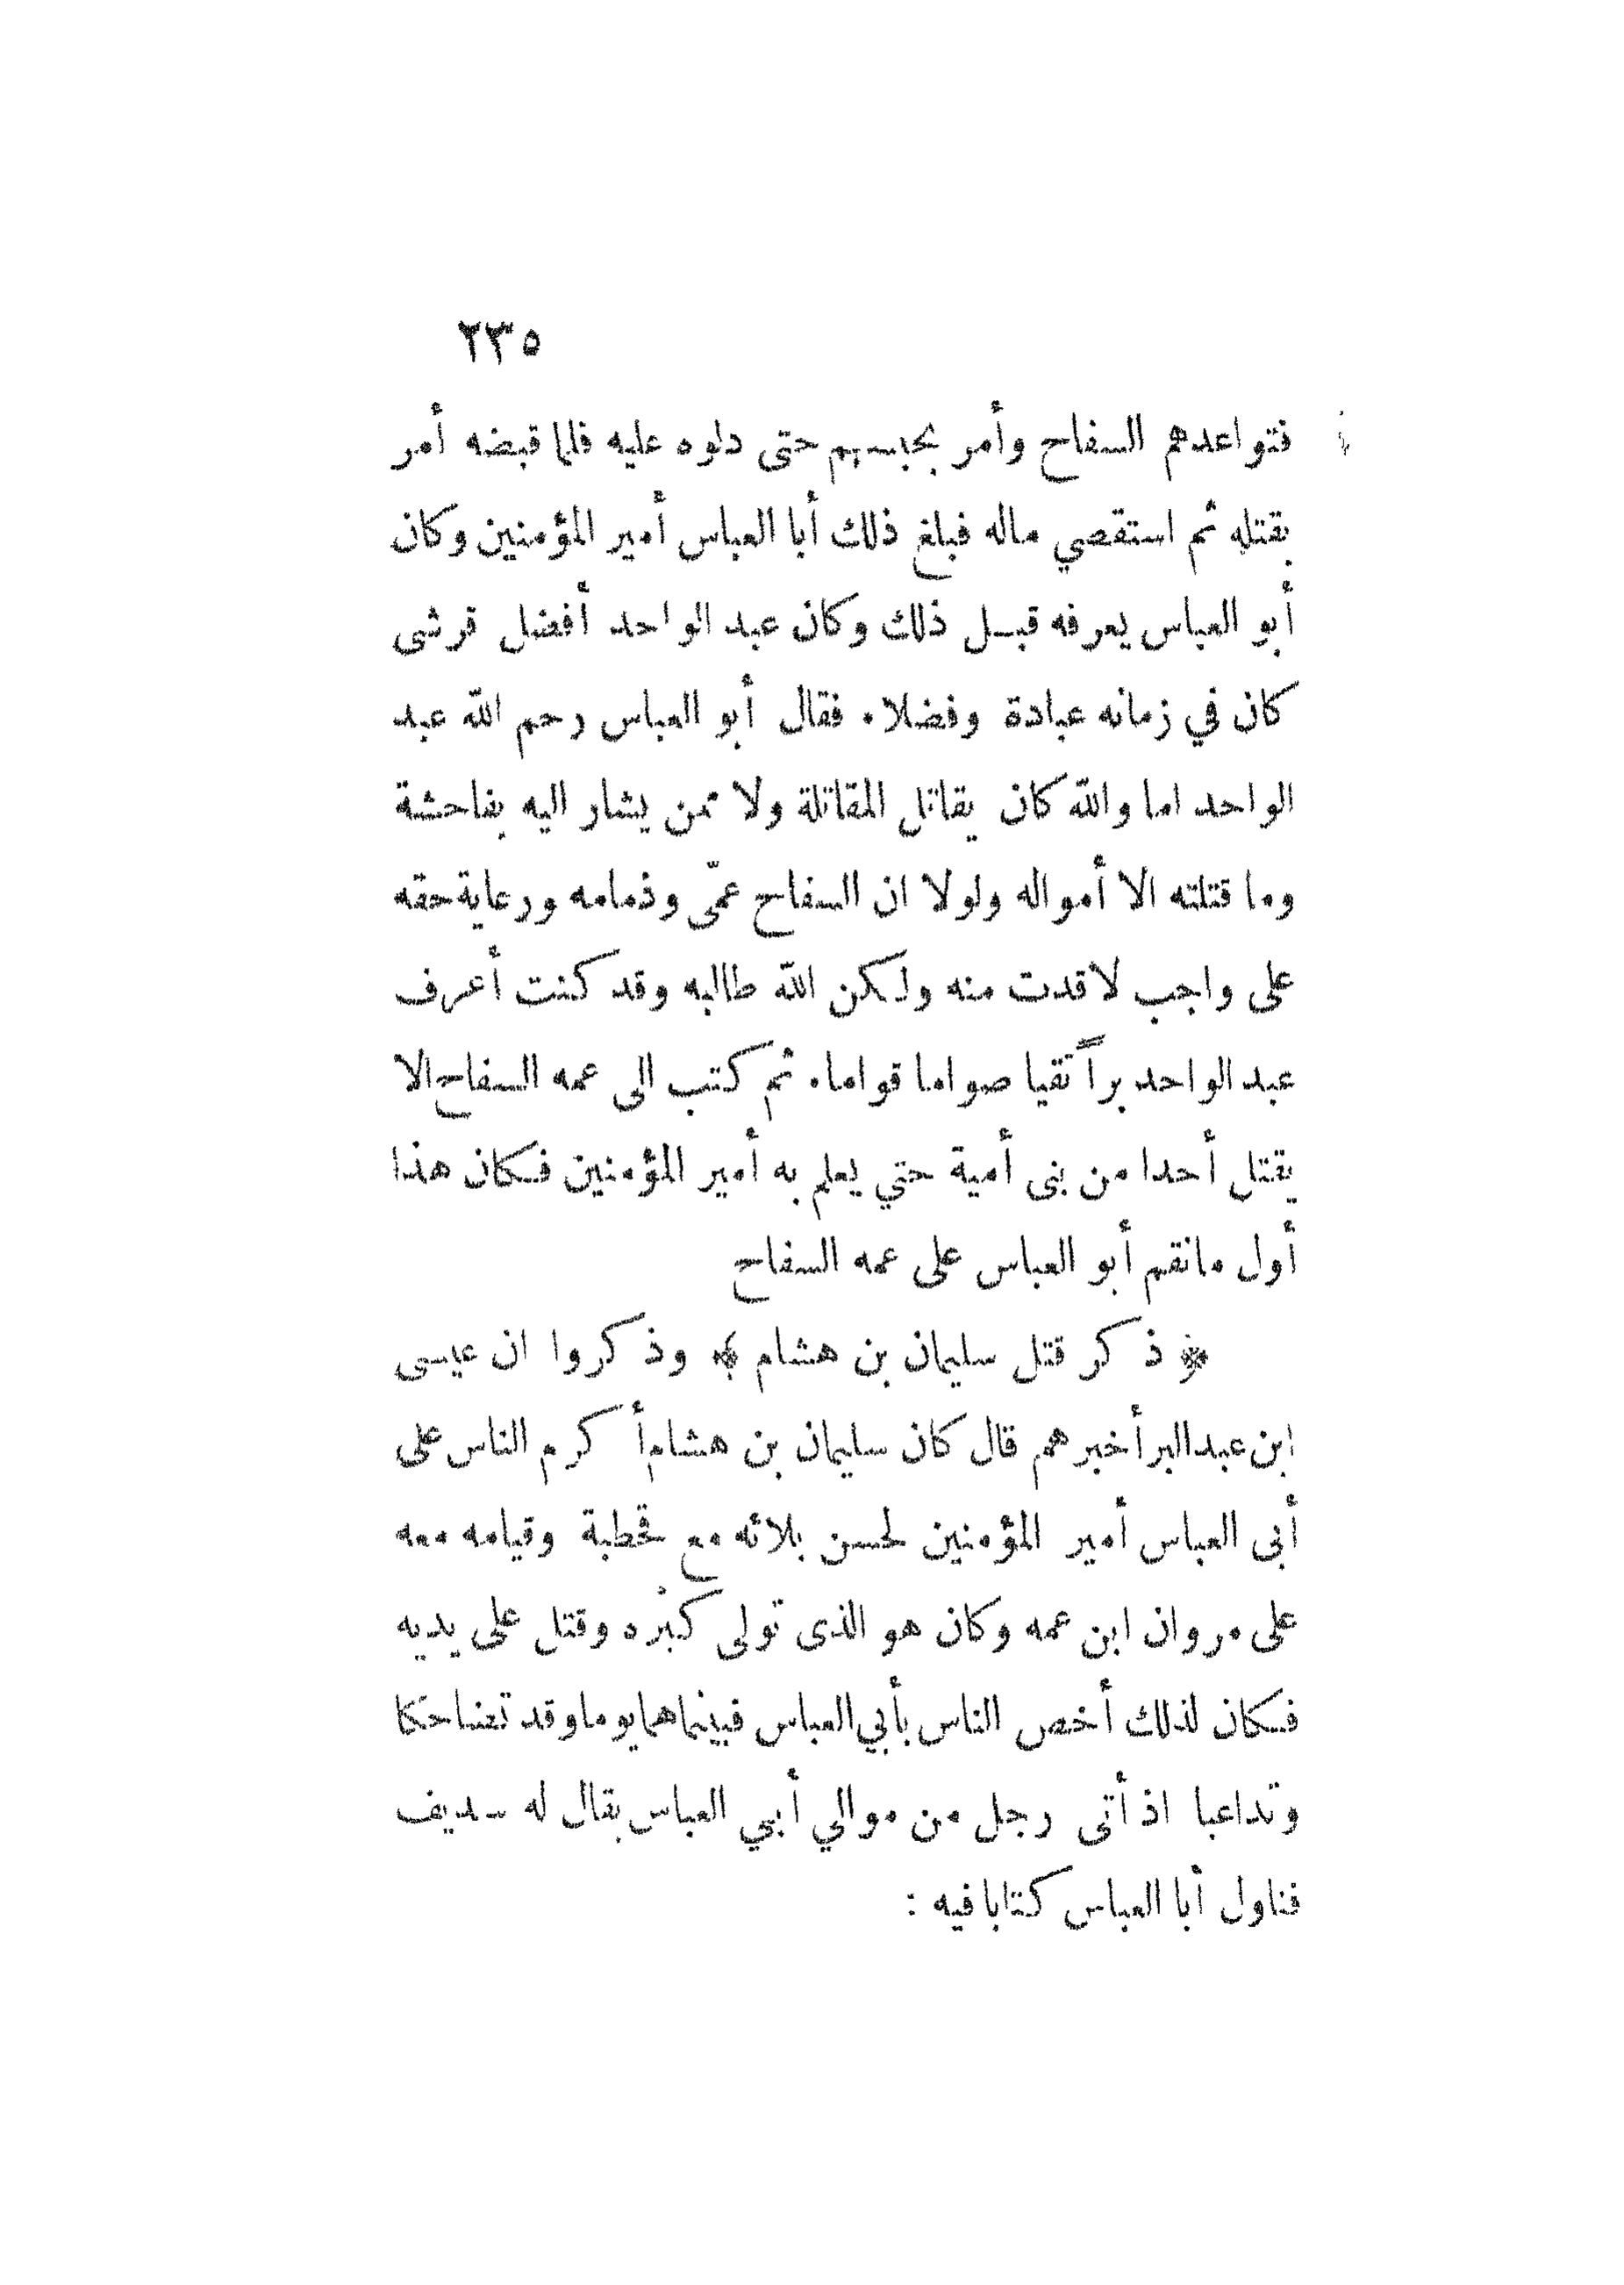 ٢٣٥
فتواعدهم السفاح وأمر بحبسهم حتى دلوه عليه فلما قبضه أمر
بقتله ثم استقصي ماله فبلغ ذلك أبا العباس أمير المؤمنين وكان
أبو العباس يعرفه قبل ذلك وكان عبد الواحد أفضل قرشى
كان في زمانه عبادة وفضلا. فقال أبو العباس رحم الله عبد
الواحد اما والله كان يقاتل المقاتلة ولا ممن يشار اليه بفاحشة
وما قتلته الا أمواله ولولا ان السفاح عمّى وذمامه ورعاية حقه
على واجب لاقدت منه ولكن الله طالبه وقد كنت أعرف
عبد الواحد براً تقيا صواما قواما. ثم كتب الى عمه السفاح الا
يقتل أحدا من بنى أمية حتي يعلم به أمير المؤمنين فكان هذا
أول مانقم أبو العباس على عمه السفاح
﴿ ذكر قتل سليمان بن هشام ﴾ وذكروا ان عيسى
ابن عبد البر أخبرهم قال كان سليمان بن هشام أكرم الناس على
أبى العباس أمير المؤمنين لحسن بلائه مع قحطبة وقيامه معه
على مروان ابن عمه وكان هو الذى تولى كبره وقتل على يديه
فكان لذلك أخص الناس بأبي العباس فبينما هما يوما وقد تضاحكا
وتداعبا اذ أتى رجل من موالي أبي العباس يقال له سديف
فناول أبا العباس كتابا فيه :